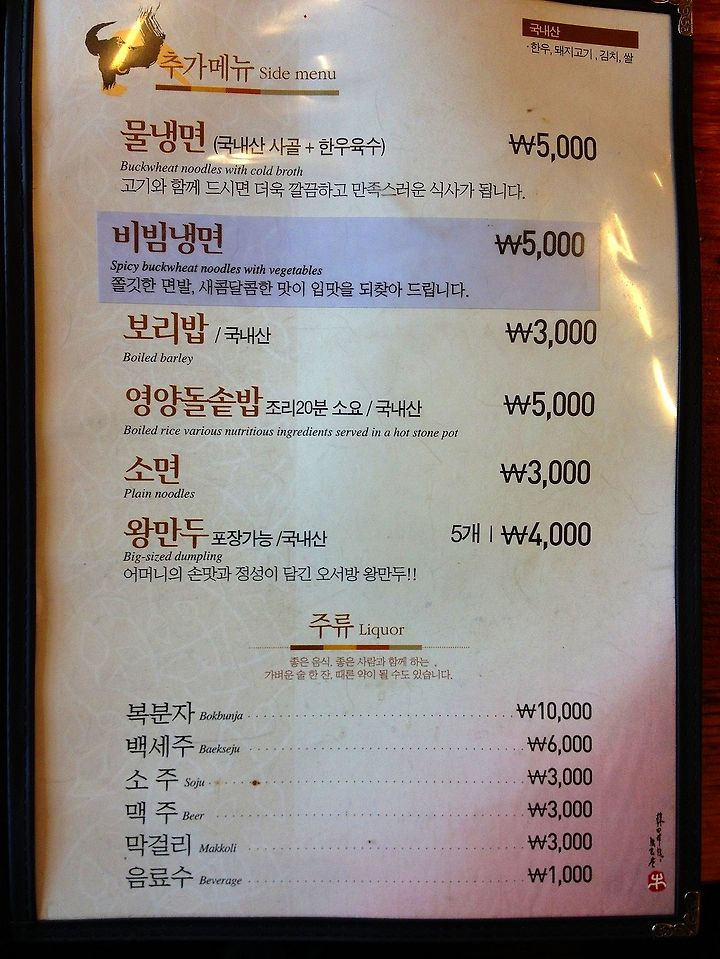 국내산
·한우, 돼지고기, 김치, 쌀
추가메뉴 Side menu
물냉면 (국내산 사골 + 한우육수) ₩5,000
Buckwheat noodles with cold broth
고기와 함께 드시면 더욱 깔끔하고 만족스러운 식사가 됩니다.
비빔냉면 ₩5,000
Spicy buckwheat noodles with vegetables
쫄깃한 면발, 새콤달콤한 맛이 입맛을 되찾아 드립니다.
보리밥 / 국내산 ₩3,000
Boiled barley
영양돌솥밥 조리20분 소요 / 국내산 ₩5,000
Boiled rice various nutritious ingredients served in a hot stone pot
소면 ₩3,000
Plain noodles
왕만두 포장가능 /국내산 5개 | ₩4,000
Big-sized dumpling
어머니의 손맛과 정성이 담긴 오서방 왕만두!!
주류 Liquor
좋은 음식, 좋은 사람과 함께 하는
가벼운 술 한 잔, 때론 약이 될 수도 있습니다.
복분자 Bokbunja ₩10,000
백세주 Baekseju ₩6,000
소 주 Soju ₩3,000
맥 주 Beer ₩3,000
막걸리 Makkoli ₩3,000
음료수 Beverage ₩1,000